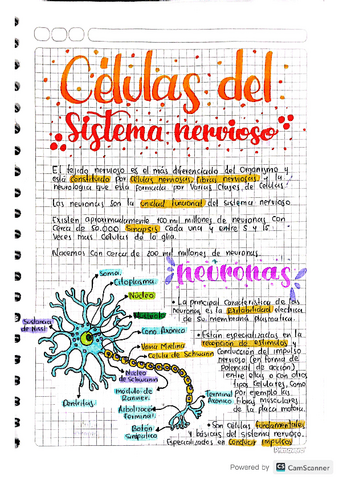 Células del
Sistema nervioso
El tejido nervioso es el mas diferenciado del organismo y
esta constituido por células nerviosas, fibras nerviosas y la
neuroglia que esta formada por varias clases de células.
Las neuronas son la unidad funcional del sistema nervioso.
Existen aproximadamente 100 mil millones de neuronas con
cerca de 50.000 sinapsis cada una y entre 5 y 15
veces mas células de la glia.
Nacemos con cerca de 200 mil millones de neuronas.
neuronas
Soma
Citoplasma
Núcleo
Nucleolo
Cono Axónico
Vaina Mielina
Célula de Schwann
Núcleo
de Schwann
módulo de
Ranvier.
Arborización
Terminal.
Botón
Sináptico
Sustancia
de Nissl
Dentritas
Terminal
Axónico
• La principal característica de las
neuronas es la excitabilidad eléctrica
de su membrana plasmática.
• Están especializadas en la
recepción de estímulos y
conducción del impulso
nervioso (en forma de
Potencial de acción)
entre ellas o con otros
tipos celulares, como
por ejemplo las
fibras musculares
de la placa motora.
• Son células fundamentales
y básicas del sistema nervioso.
Especializadas en conducir impulsos
Powered by CS CamScanner